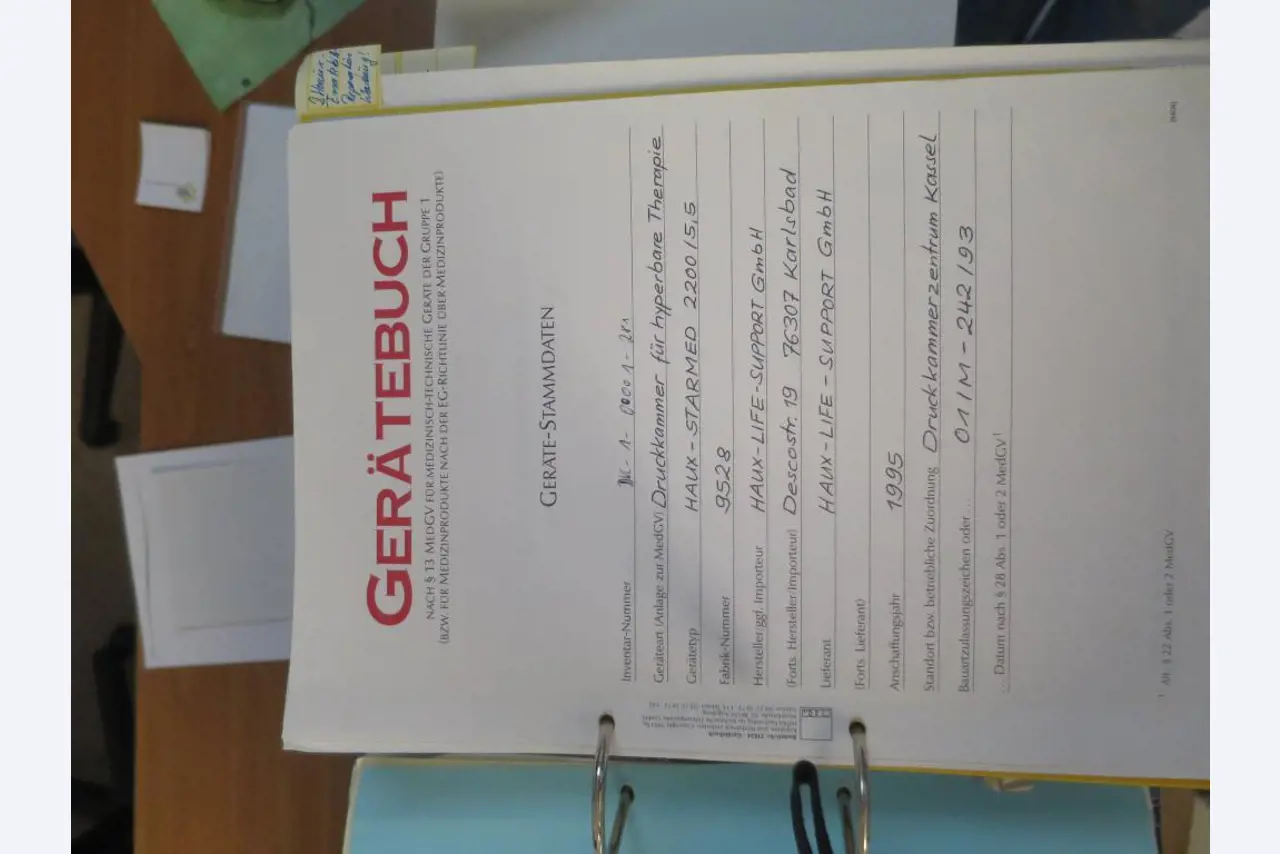 GERÄTEBUCH
NACH § 13 MEDGV FÜR MEDIZINISCH-TECHNISCHE GERÄTE DER GRUPPE 1
(BZW. FÜR MEDIZINPRODUKTE NACH DER EG-RICHTLINIE ÜBER MEDIZINPRODUKTE)
GERÄTE-STAMMDATEN
Inventar-Nummer
Geräteart (Anlage zur MedGV) Druckkammer für hyperbare Therapie
Gerätetyp HAUX-STARMED 2200/5,5
Fabrik-Nummer 9528
Hersteller/ggf. Importeur HAUX-LIFE-SUPPORT GmbH
(Forts. Hersteller/Importeur) Descostr. 19 76307 Karlsbad
Lieferant HAUX-LIFE-SUPPORT GmbH
(Forts. Lieferant)
Anschaffungsjahr 1995
Standort bzw. betriebliche Zuordnung Druckkammerzentrum Kassel
Bauartzulassungszeichen oder ... 01/M-242/93
... Datum nach § 28 Abs. 1 oder 2 MedGV¹
§ 22 Abs. 1 oder 2 MedGV